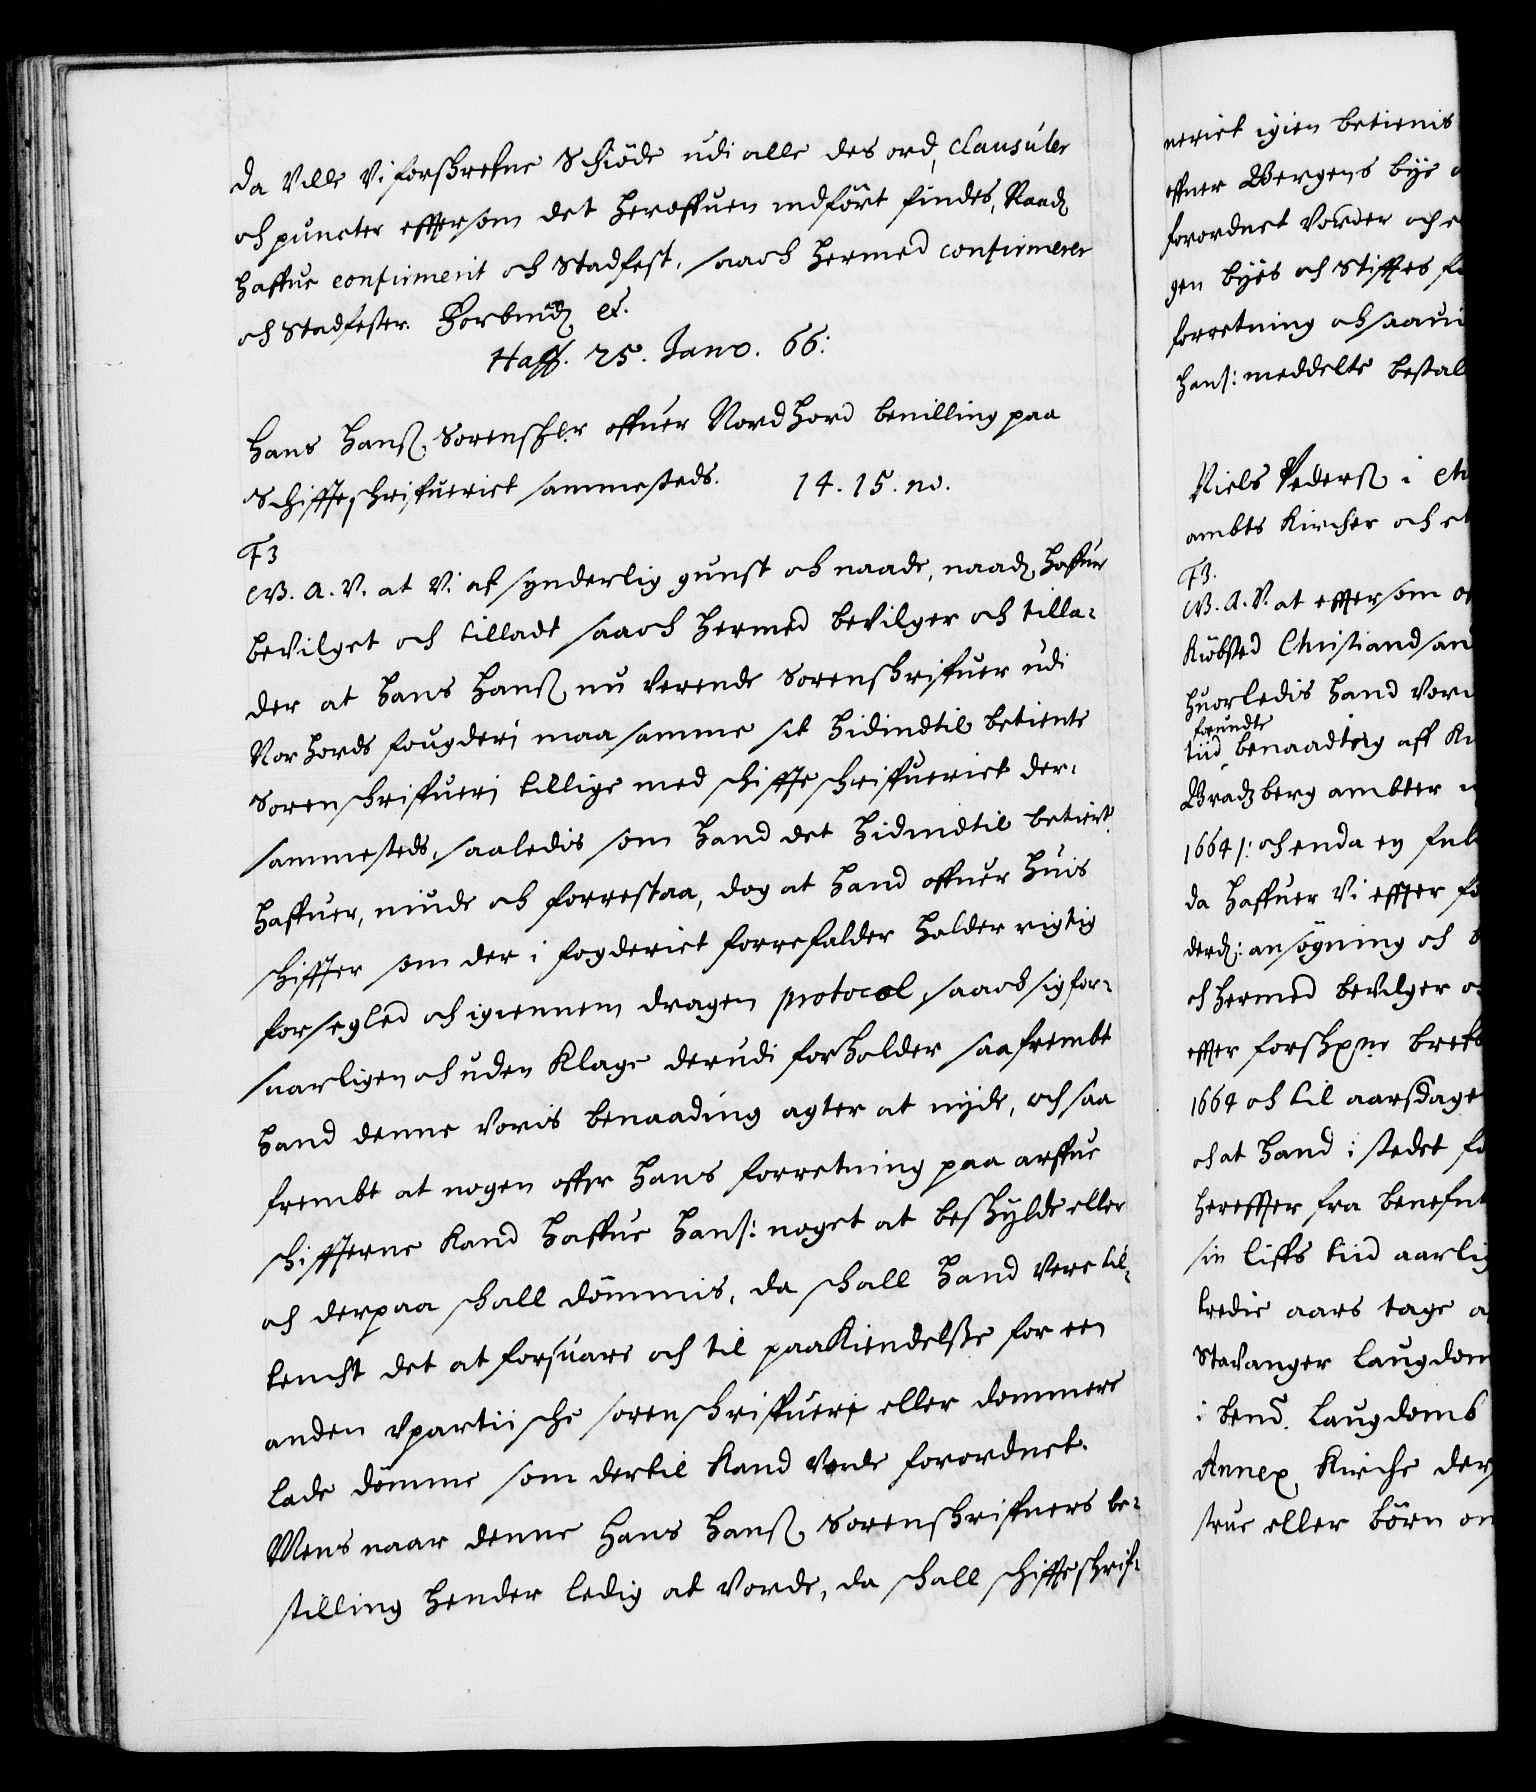 da Ville Vi forskrefne Schiøde udi alle des ord, clausuler
och puncter effter som det heroffuen indført findes, Naad.
haffue confirmerit och Stadfest, saa och hermed confirmerer
och Stadfester. Forbiud. etc.
Haff. 25. Janv. 66:
Hans Hanß. Sorenskr offuer Nordhord bevilling paa
Schiffteschrifueriet sammesteds. 14. 15. no.
F3
G. A. V. at Vi af synderlig gunst och naade, naad. haffue
bevilget och tilladt saa och hermed bevilger och tilla-
der at Hans Hanß. nu verende Sorenskrifuer udi
Norhords fougderi maa samme sit hidindtil betiente
Sorenschriffueri tillige med schiffteschriffueriet der-
sammesteds, saaledis som hand det hidindtil betient
haffuer, niude och forrestaa, dog at hand offuer huis
schiffter som der i fogderiet forrefalder holder rigtig
forsegled och igiennem dragen protocol, saa och sig for-
suarligen och uden Klage derudi forholder saafrembt
hand denne voris benaading agter at nyde, och saa
frembt at nogen effter hans forretning paa arffue
schiffterne kand haffue hans: noget at beskylde eller
och derpaa schall dømmis, da schall hand vere til-
tencht det at forsuare och til paakiendelsße for een
anden vpartiische sorenschriffuere eller dommere
lade dømme som dertil kand vorde forordnet.
Mens naar denne Hans Hanß. Sorenskrifuers be-
stilling hender ledig at vorde, da schall schiffteskrif-
neriet igien betienis
offuer Bergens bye
forordnet vorder och
gen byes och Stifftes
forretning och saa
hans: meddelte bestal
Niels Pederß i
ambts Kircher och
F3.
G. A. V. at effter som
Kiøbsted Christiandsan
huorledis hand vor
forundte
tiid benaadtig aff
Bradzberg ambter
1664 /: och enda ey
da haffuer Vi effter
derd: ansøgning och
och hermed bevilger
effter forskrne breffs
1664 och til aarsdage
och at hand i stedet
hereffter fra benefnt
sin liffs tiid aarlig
tredie aars tage
Stavanger Laugdom
i bend. Laugdoms
Annex Kirche der
strue eller børn